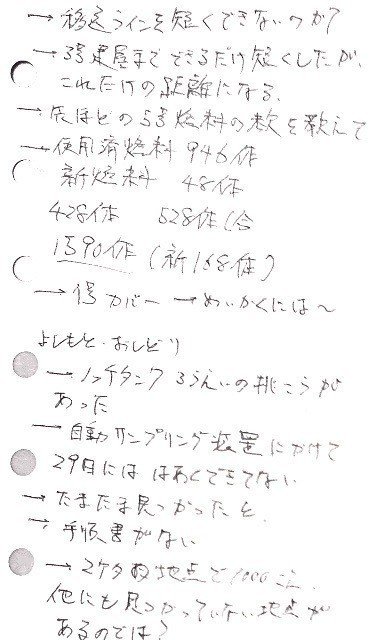 → 移送ラインを短くできないのか?
→ 3号建屋までできるだけ短くしたが、
これだけの距離になる、
→ 先ほどの号燃料の数を教えて
→ 使用済燃料 946体
新燃料 48体
428体 528体(合
1590体 (新168体)
→ 1号カバー → めいかくには〜
よしもと・おしどり
→ ノッチタンク の が
あった
→ 自動サンプリング装置にかけて
29日には はあくできてない
→ たまたま見つかったと、
→ 手順書がない
→ 2ケタの地点で1000
他にも見つかっていない地点が
あるのでは?